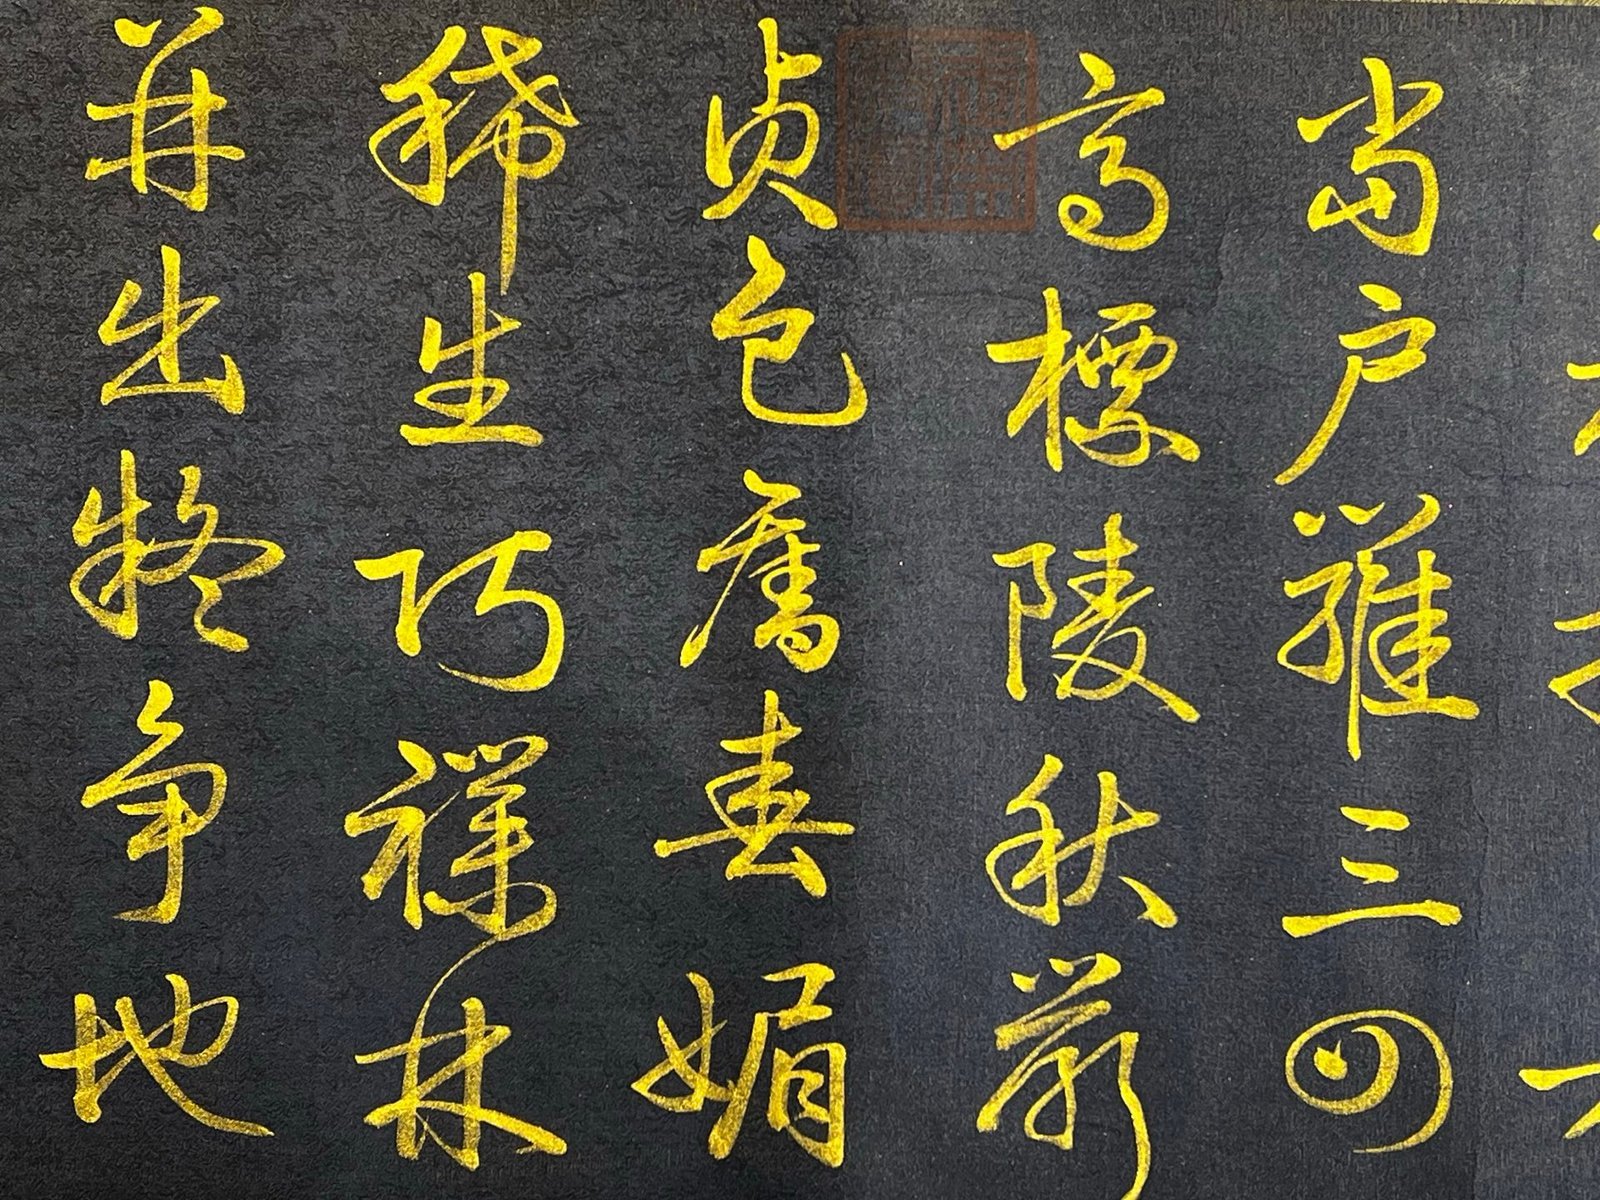 當户羅三四
高標陵秋嚴
貞色奪春媚
稀生巧補林
并出疑争地